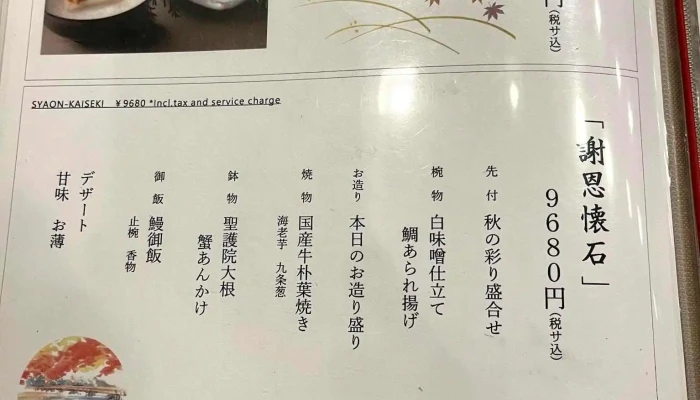 円(税サ込)
SYAON-KAISEKI ¥9680 *Incl.tax and service charge
「謝恩懐石」
9680円(税サ込)
先付 秋の彩り盛合せ
椀物 白味噌仕立て
鯛あられ揚げ
お造り 本日のお造り盛り
焼物 国産牛朴葉焼き
海老芋 九条葱
鉢物 聖護院大根
蟹あんかけ
御飯 鰻御飯
止椀 香物
デザート
甘味 お薄